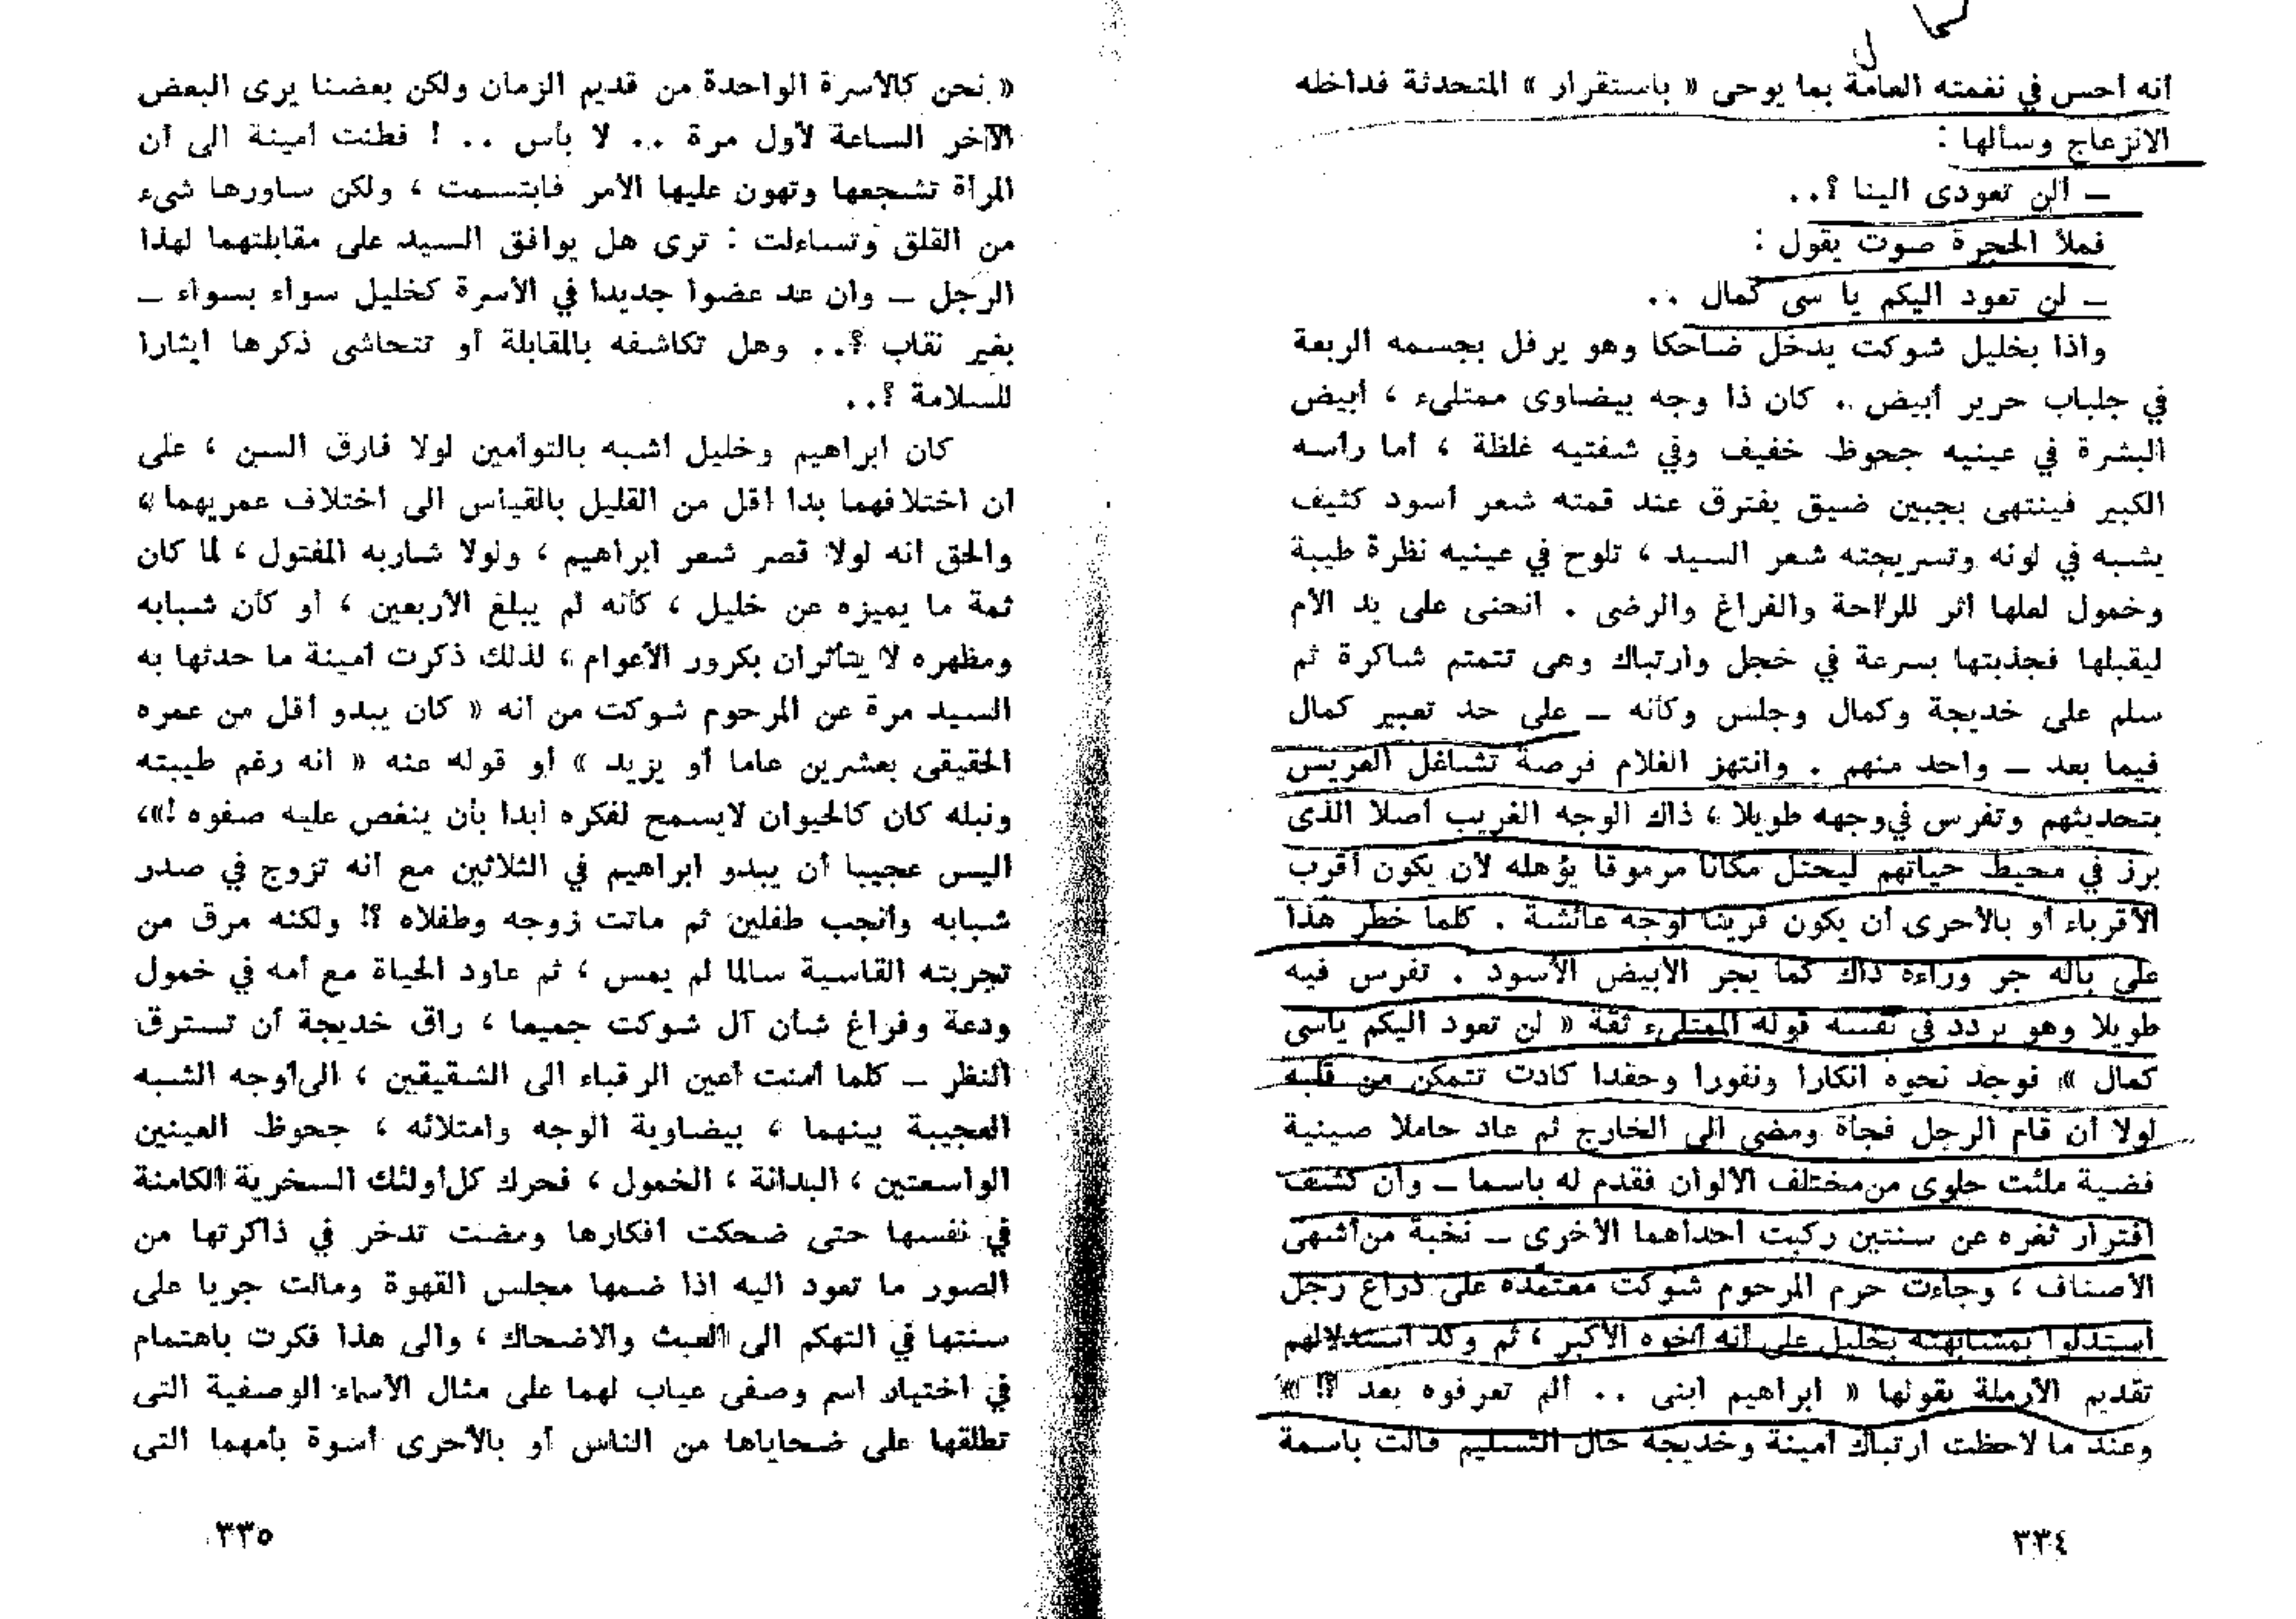 أنه أحس في نغمته العامة بما يوحى « باستقرار » المتحدثة فداخله
الانزعاج وسألها :
ــ ألن تعودى الينا ؟..
فملأ الحجرة صوت يقول :
ــ لن تعود اليكم يا سى كمال ..
واذا بخليل شوكت يدخل ضاحكا وهو يرفل بجسمه الربعة
في جلباب حرير أبيض .. كان ذا وجه بيضاوى ممتلىء ، أبيض
البشرة في عينيه جحوظ خفيف وفي شفتيه غلظة ، أما رأسه
الكبير فينتهى بجبين ضيق يفترق عند قمته شعر أسود كثيف
يشبه في لونه وتسريحته شعر السيد ، تلوح في عينيه نظرة طيبة
وخمول لعلها أثر للراحة والفراغ والرضى . انحنى على يد الأم
ليقبلها فجذبتها بسرعة في خجل وارتباك وهى تتمتم شاكرة ثم
سلم على خديجة وكمال وجلس وكأنه ــ على حد تعبير كمال
فيما بعد ــ واحد منهم . وانتهز الغلام فرصة تشاغل العريس
بتحديثهم وتفرس في وجهه طويلا ، ذاك الوجه الغريب أصلا الذى
برز في محيط حياتهم ليحتل مكانا مرموقا يؤهله لأن يكون أقرب
الأقرباء أو بالأحرى أن يكون قرينا لوجه عائشة . كلما خطر هذا
على باله جر وراءه ذاك كما يجر الأبيض الأسود . تفرس فيه
طويلا وهو يردد في نفسه قوله الممتلىء ثقة « لن تعود اليكم ياسى
كمال » فوجد نحوه انكارا ونفورا وحقدا كادت تتمكن من قلبه
لولا أن قام الرجل فجأة ومضى الى الخارج ثم عاد حاملا صينية
فضية ملئت حلوى من مختلف الألوان فقدم له باسما ــ وان كشف
افترار ثغره عن سنتين ركبت احداهما الأخرى ــ نخبة من أشهى
الأصناف ، وجاءت حرم المرحوم شوكت معتمدة على ذراع رجل
استدلوا بمشابهته بخليل على أنه أخوه الأكبر ، ثم وكد استدلالهم
تقديم الأرملة بقولها « ابراهيم ابنى .. ألم تعرفوه بعد ؟! »
وعند ما لاحظت ارتباك أمينة وخديجة حال التسليم قالت باسمة
٣٣٤
« نحن كالأسرة الواحدة من قديم الزمان ولكن بعضنا يرى البعض
الآخر الساعة لأول مرة .. لا بأس .. ! فطنت أمينة الى أن
المرأة تشجعها وتهون عليها الأمر فابتسمت ، ولكن ساورها شىء
من القلق وتساءلت : ترى هل يوافق السيد على مقابلتهما لهذا
الرجل ــ وان عد عضوا جديدا في الأسرة كخليل سواء بسواء ــ
بغير نقاب ؟.. وهل تكاشفه بالمقابلة أو تتحاشى ذكرها ايثارا
للسلامة ؟..
كان ابراهيم وخليل أشبه بالتوأمين لولا فارق السن ، على
ان اختلافهما بدا أقل من القليل بالقياس الى اختلاف عمريهما ،
والحق انه لولا قصر شعر ابراهيم ، ولولا شاربه المفتول ، لما كان
ثمة ما يميزه عن خليل ، كأنه لم يبلغ الأربعين ، أو كأن شبابه
ومظهره لا يتأثران بكرور الأعوام ، لذلك ذكرت أمينة ما حدثها به
السيد مرة عن المرحوم شوكت من أنه « كان يبدو أقل من عمره
الحقيقى بعشرين عاما أو يزيد » أو قوله عنه « انه رغم طيبته
ونبله كان كالحيوان لايسمح لفكره أبدا بأن ينغص عليه صفوه !»،
اليس عجيبا أن يبدو ابراهيم في الثلاثين مع أنه تزوج في صدر
شبابه وأنجب طفلين ثم ماتت زوجه وطفلاه ؟! ولكنه مرق من
تجربته القاسية سالما لم يمس ، ثم عاود الحياة مع أمه في خمول
ودعة وفراغ شأن آل شوكت جميعا ، راق خديجة أن تسترق
النظر ــ كلما أمنت أعين الرقباء الى الشقيقين ، الى أوجه الشبه
العجيبة بينهما ، بيضاوية الوجه وامتلائه ، جحوظ العينين
الواسعتين ، البدانة ، الخمول ، فحرك كل أولئك السخرية الكامنة
في نفسها حتى ضحكت أفكارها ومضت تدخر في ذاكرتها من
الصور ما تعود اليه اذا ضمها مجلس القهوة ومالت جريا على
سنتها في التهكم الى العبث والاضحاك ، والى هذا فكرت باهتمام
في اختيار اسم وصفى عياب لهما على مثال الأسماء الوصفية التى
تطلقها على ضحاياها من الناس أو بالأحرى أسوة بأمهما التى
٣٣٥